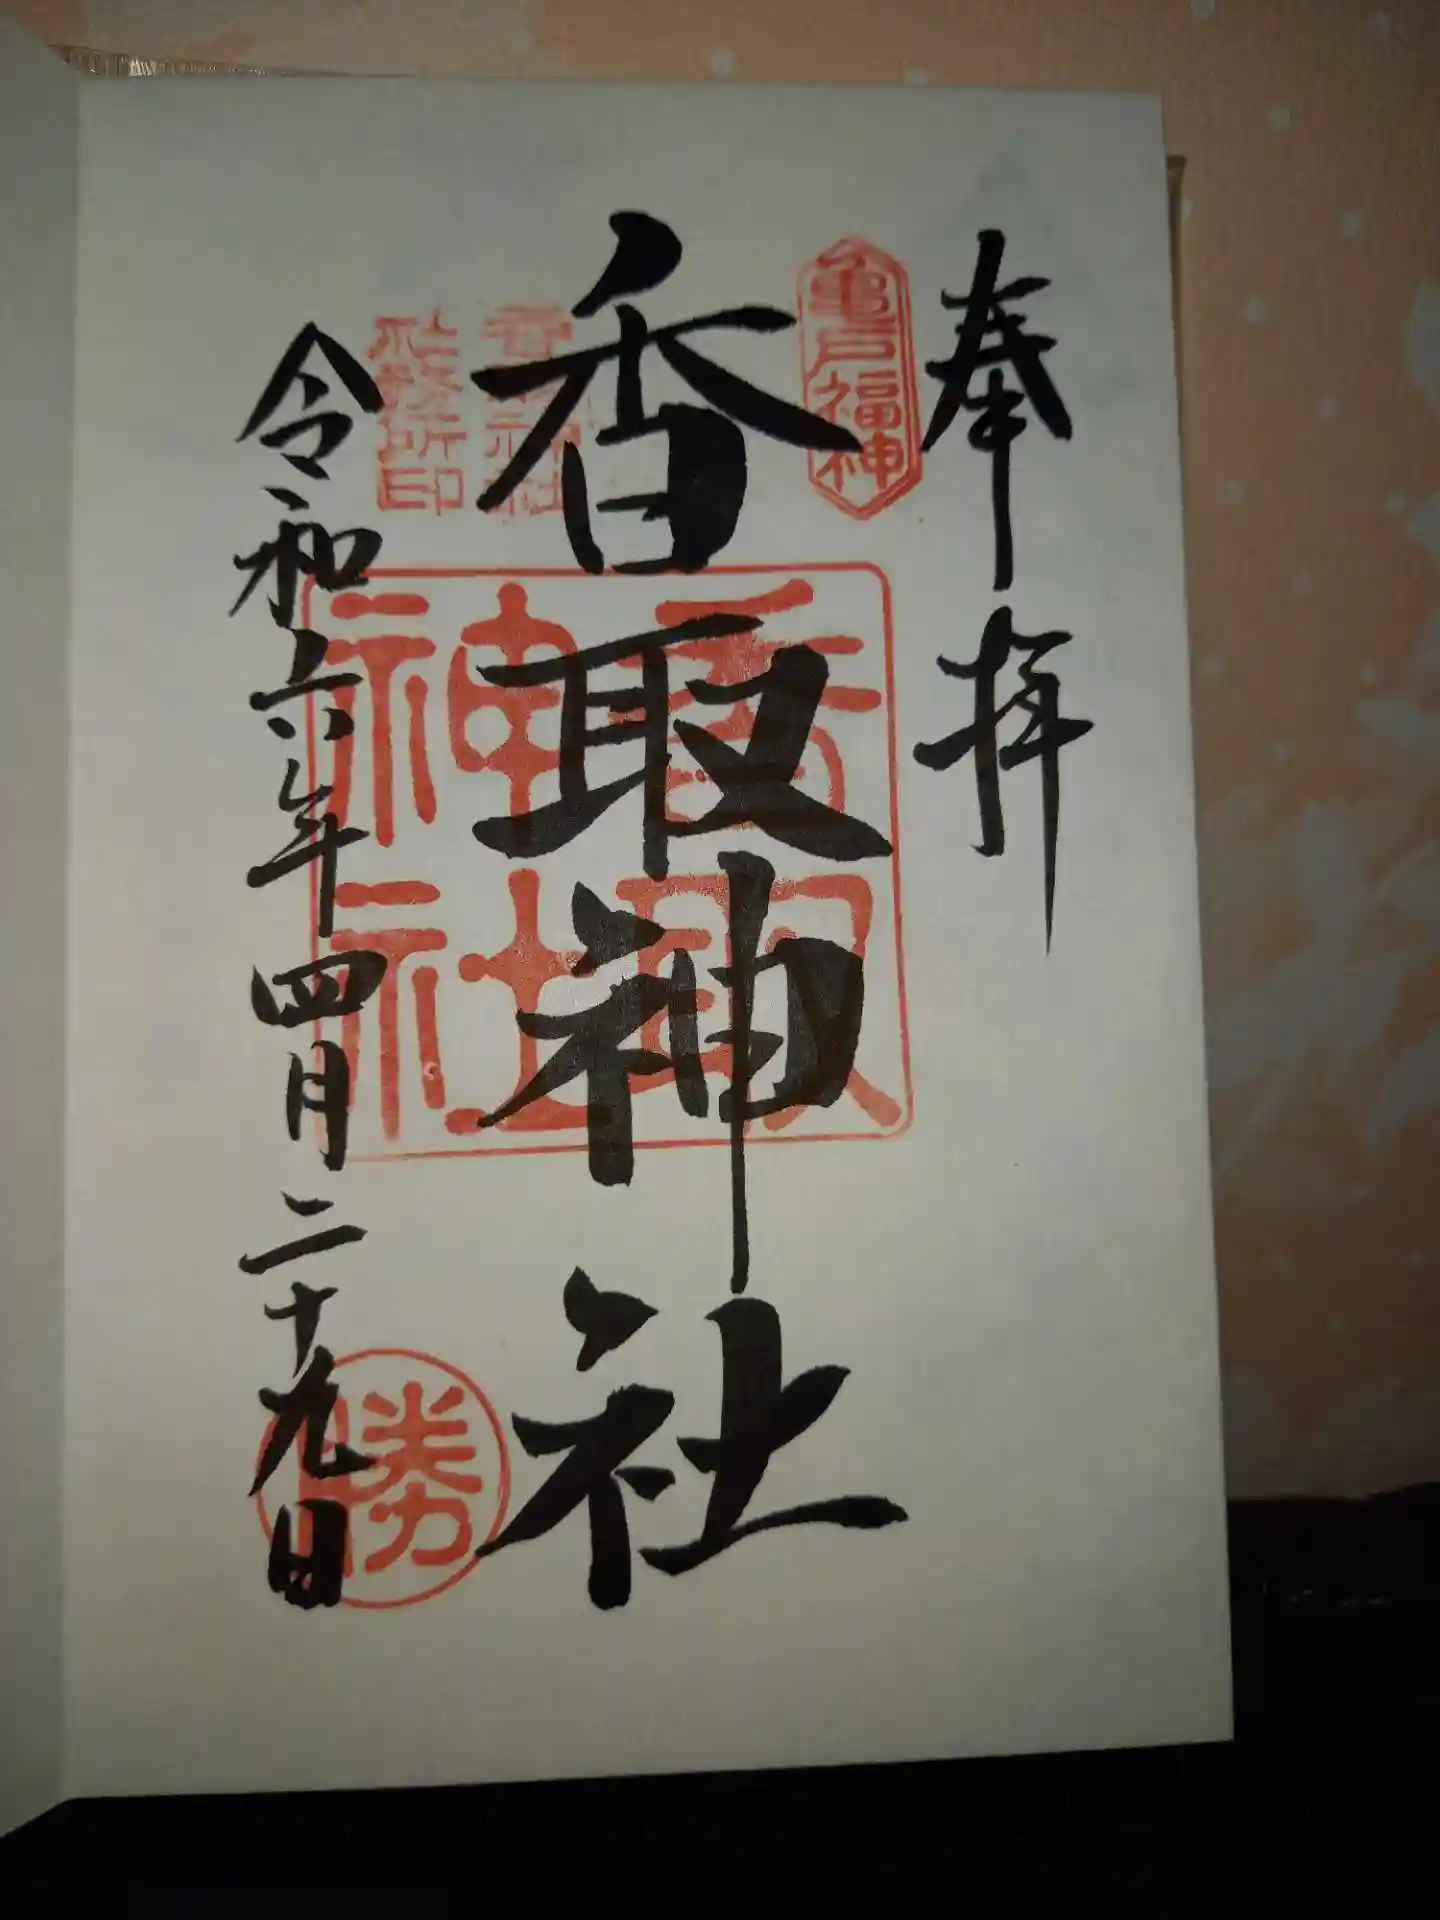 奉拝
亀戸福神
香取神社
香取神社
社務所印
香取
神社
令和六年四月二十九日
勝